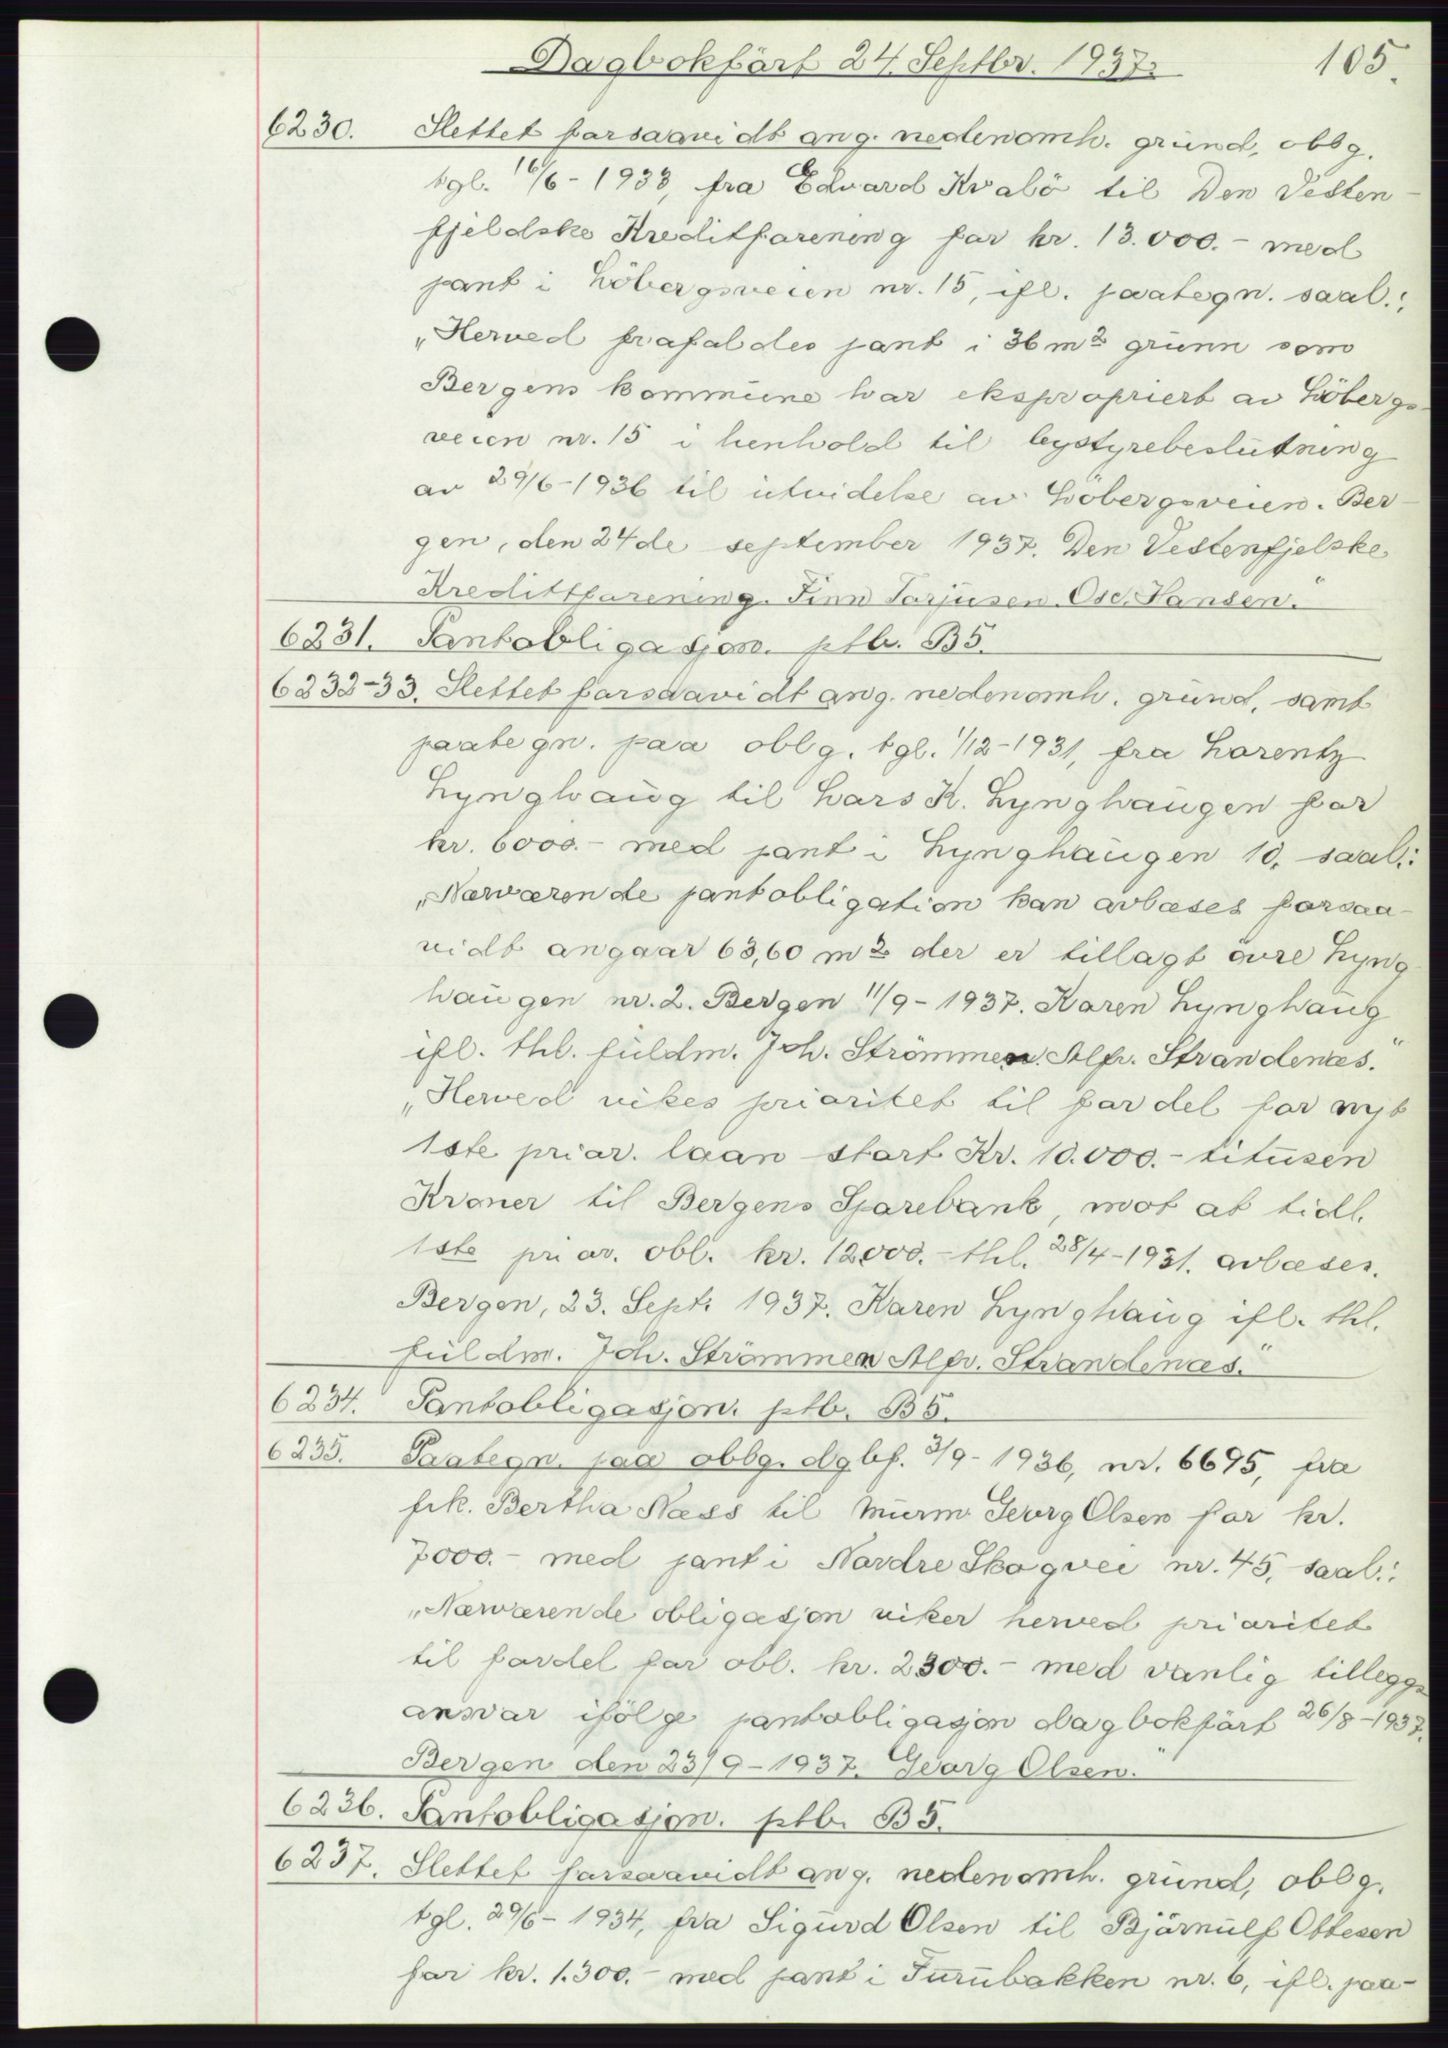 Dagbokført 24. Septbr. 1937.
105.
6230. Slettet forsaavidt ang. nedenomh. grund, oblg.
tgl. 16/6-1933, fra Edvard Kvalö til Den Vesten-
fjeldske Kreditforening for kr. 13.000.- med
pant i Löbergsveien nr. 15, ifl. paategn. saal.:
„Herved frafaldes pant i 36 m2 grunn som
Bergens kommune har ekspropriert av Löbergs-
veien nr. 15 i henhold til bystyrebeslutning
av 29/6-1936 til utvidelse av Löbergsveien. Ber-
gen, den 24de september 1937. Den Vestenfjelske
Kredittforening. Finn Tarjusen. Osc. Hansen."
6231. Pantobligasjon. ptb. B5.
6232-33. Slettet forsaavidt ang. nedenomh. grund, samt
paategn. paa oblg. tgl. 1/12-1931, fra Lorentz
Lynghaug til Lars K. Lynghaugen for
kr. 6000.- med pant i Lynghaugen 10, saal.:
„Nærværende pantobligation kan avlæses forsaa-
vidt angaar 63,60 m2 der er tillagt övre Lyng-
haugen nr. 2. Bergen 11/9-1937. Karen Lynghaug
ifl. thl. fuldm. Joh. Strömmen. Alfr. Strandenæs."
„Herved vikes prioritet til fordel for nyt
1ste prior. laan stort Kr. 10.000.- titusen
Kroner til Bergens Sparebank, mot at tidl.
1ste prior. obl. kr. 12000.- thl. 28/4-1931. avlæses.
Bergen, 23. Sept. 1937. Karen Lynghaug ifl. thl.
fuldm. Joh. Strömmen Alfr. Strandenæs."
6234. Pantobligasjon. ptb. B5.
6235. Paategn. paa oblg. dgbf. 3/9-1936, nr. 6695, fra
frk. Bertha Næss til murm. Georg Olsen for kr.
7000.- med pant i Nordre Skogvei nr. 45, saal.:
„Nærværende obligasjon viker herved prioritet
til fordel for obl. kr. 2300.- med vanlig tilleggs-
ansvar ifölge pantobligasjon dagbokfört 26/8-1937.
Bergen den 23/9-1937. Georg Olsen."
6236. Pantobligasjon. ptb. B5.
6237. Slettet forsaavidt ang. nedenomh. grund, oblg.
tgl. 29/6-1934, fra Sigurd Olsen til Björnulf Ottesen
for kr. 1.300.- med pant i Furubakken nr. 6, ifl. paa-